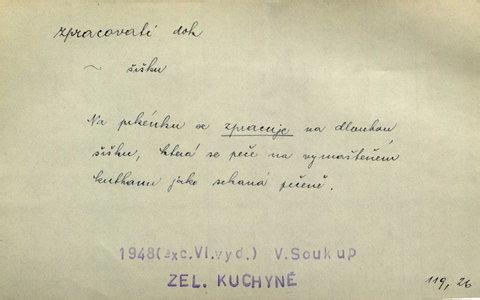 zpracovati dok
~ šišku
Na prkénku se zpracuje na dlouhou
šišku, která se peče na vymaštěném
kuthanu jako sekaná pečeně.
1948(exc.VI.vyd.) V.Soukup
ZEL. KUCHYNĚ
119, 26